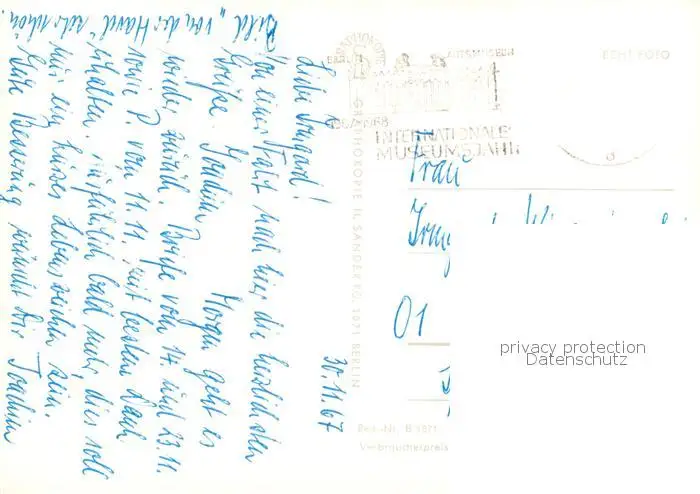 30.11.67
Liebe Irmgard!
Von einer Fahrt nach hier die herzlichsten
Grüße. Joachim Morgen geht es
wieder zurück. Briefe vom 14. und 23.11.
sowie P vom 11.11. mit bestem Dank
erhalten. Ausführlich bald mehr, dies soll
nur ein kurzes Lebenszeichen sein.
Gute Besserung wünscht Dir Joachim
Bild "von der Hand" sehr schön.
GRAPHOKOPIE
INTERNATIONALES
MUSEUMSJAHR
ECHT FOTO
GRAPHOKOPIE H. SANDER KG, 1071 BERLIN
Frau
Irmg
01
Best.-Nr. B 1871
Verbraucherpreis
privacy protection
Datenschutz